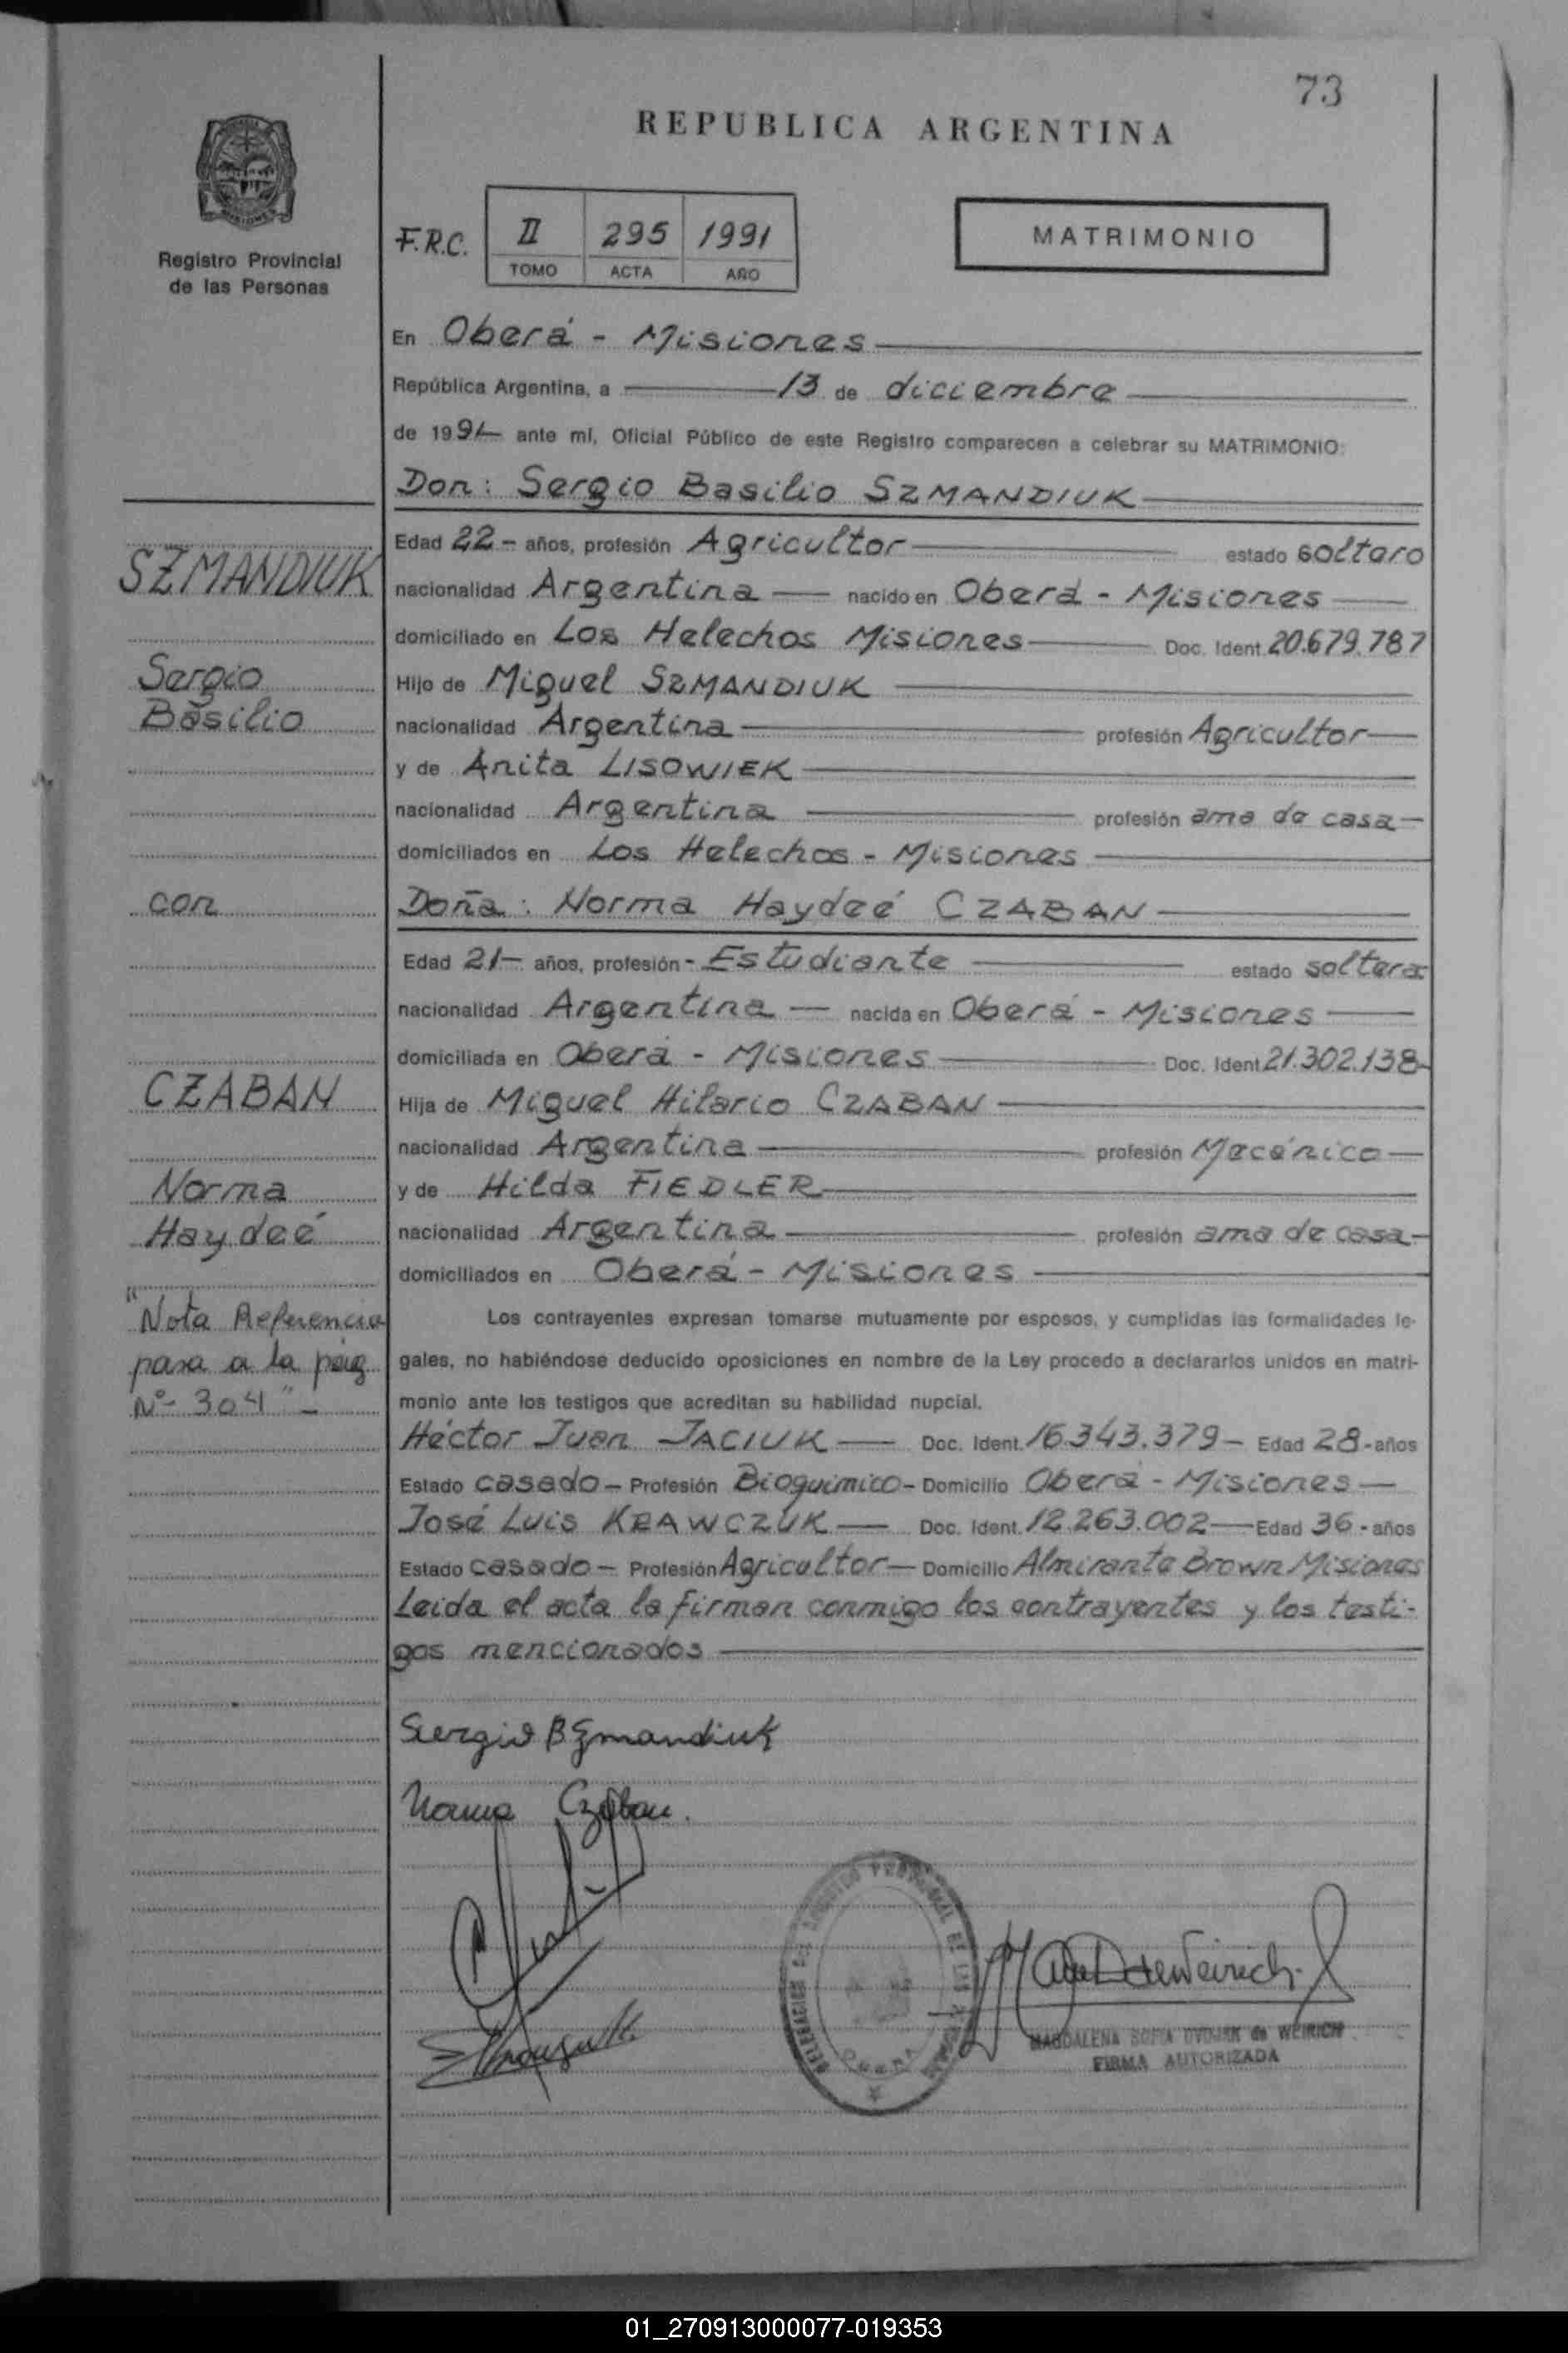 73
REPUBLICA ARGENTINA
Registro Provincial
de las Personas
F.R.C. II 295 1991
TOMO ACTA AÑO
MATRIMONIO
En Oberá - Misiones
República Argentina, a 13 de diciembre
de 1991 ante mí, Oficial Público de este Registro comparecen a celebrar su MATRIMONIO:
Don: Sergio Basilio SZMANDIUK
Edad 22 - años, profesión Agricultor estado soltero
SZMANDIUK
nacionalidad Argentina nacido en Oberá - Misiones
domiciliado en Los Helechos Misiones Doc. Ident. 20.679.787
Sergio
Hijo de Miguel SZMANDIUK
Basilio
nacionalidad Argentina profesión Agricultor
y de Anita LISOWIEK
nacionalidad Argentina profesión ama de casa
domiciliados en Los Helechos - Misiones
con
Doña: Norma Haydeé CZABAN
Edad 21 - años, profesión - Estudiante estado soltera
nacionalidad Argentina nacida en Oberá - Misiones
domiciliada en Oberá - Misiones Doc. Ident. 21.302.138
CZABAN
Hija de Miguel Hilario CZABAN
nacionalidad Argentina profesión Mecánico
Norma
y de Hilda FIEDLER
Haydeé
nacionalidad Argentina profesión ama de casa
domiciliados en Oberá - Misiones
"Nota Referencia
pasa a la pág
Nº 304" -
Los contrayentes expresan tomarse mutuamente por esposos, y cumplidas las formalidades le-
gales, no habiéndose deducido oposiciones en nombre de la Ley procedo a declararlos unidos en matri-
monio ante los testigos que acreditan su habilidad nupcial.
Héctor Juan JACIUK Doc. Ident. 16.343.379 - Edad 28 - años
Estado casado - Profesión Bioquímico - Domicilio Oberá - Misiones
José Luis KRAWCZUK Doc. Ident. 12.263.002 Edad 36 - años
Estado casado - Profesión Agricultor - Domicilio Almirante Brown Misiones
Leida el acta la firman conmigo los contrayentes y los testi-
gos mencionados
Sergio B Szmandiuk
Norma Czaban.
MAGDALENA SOFIA de WEIRICH
FIRMA AUTORIZADA
01_270913000077-019353